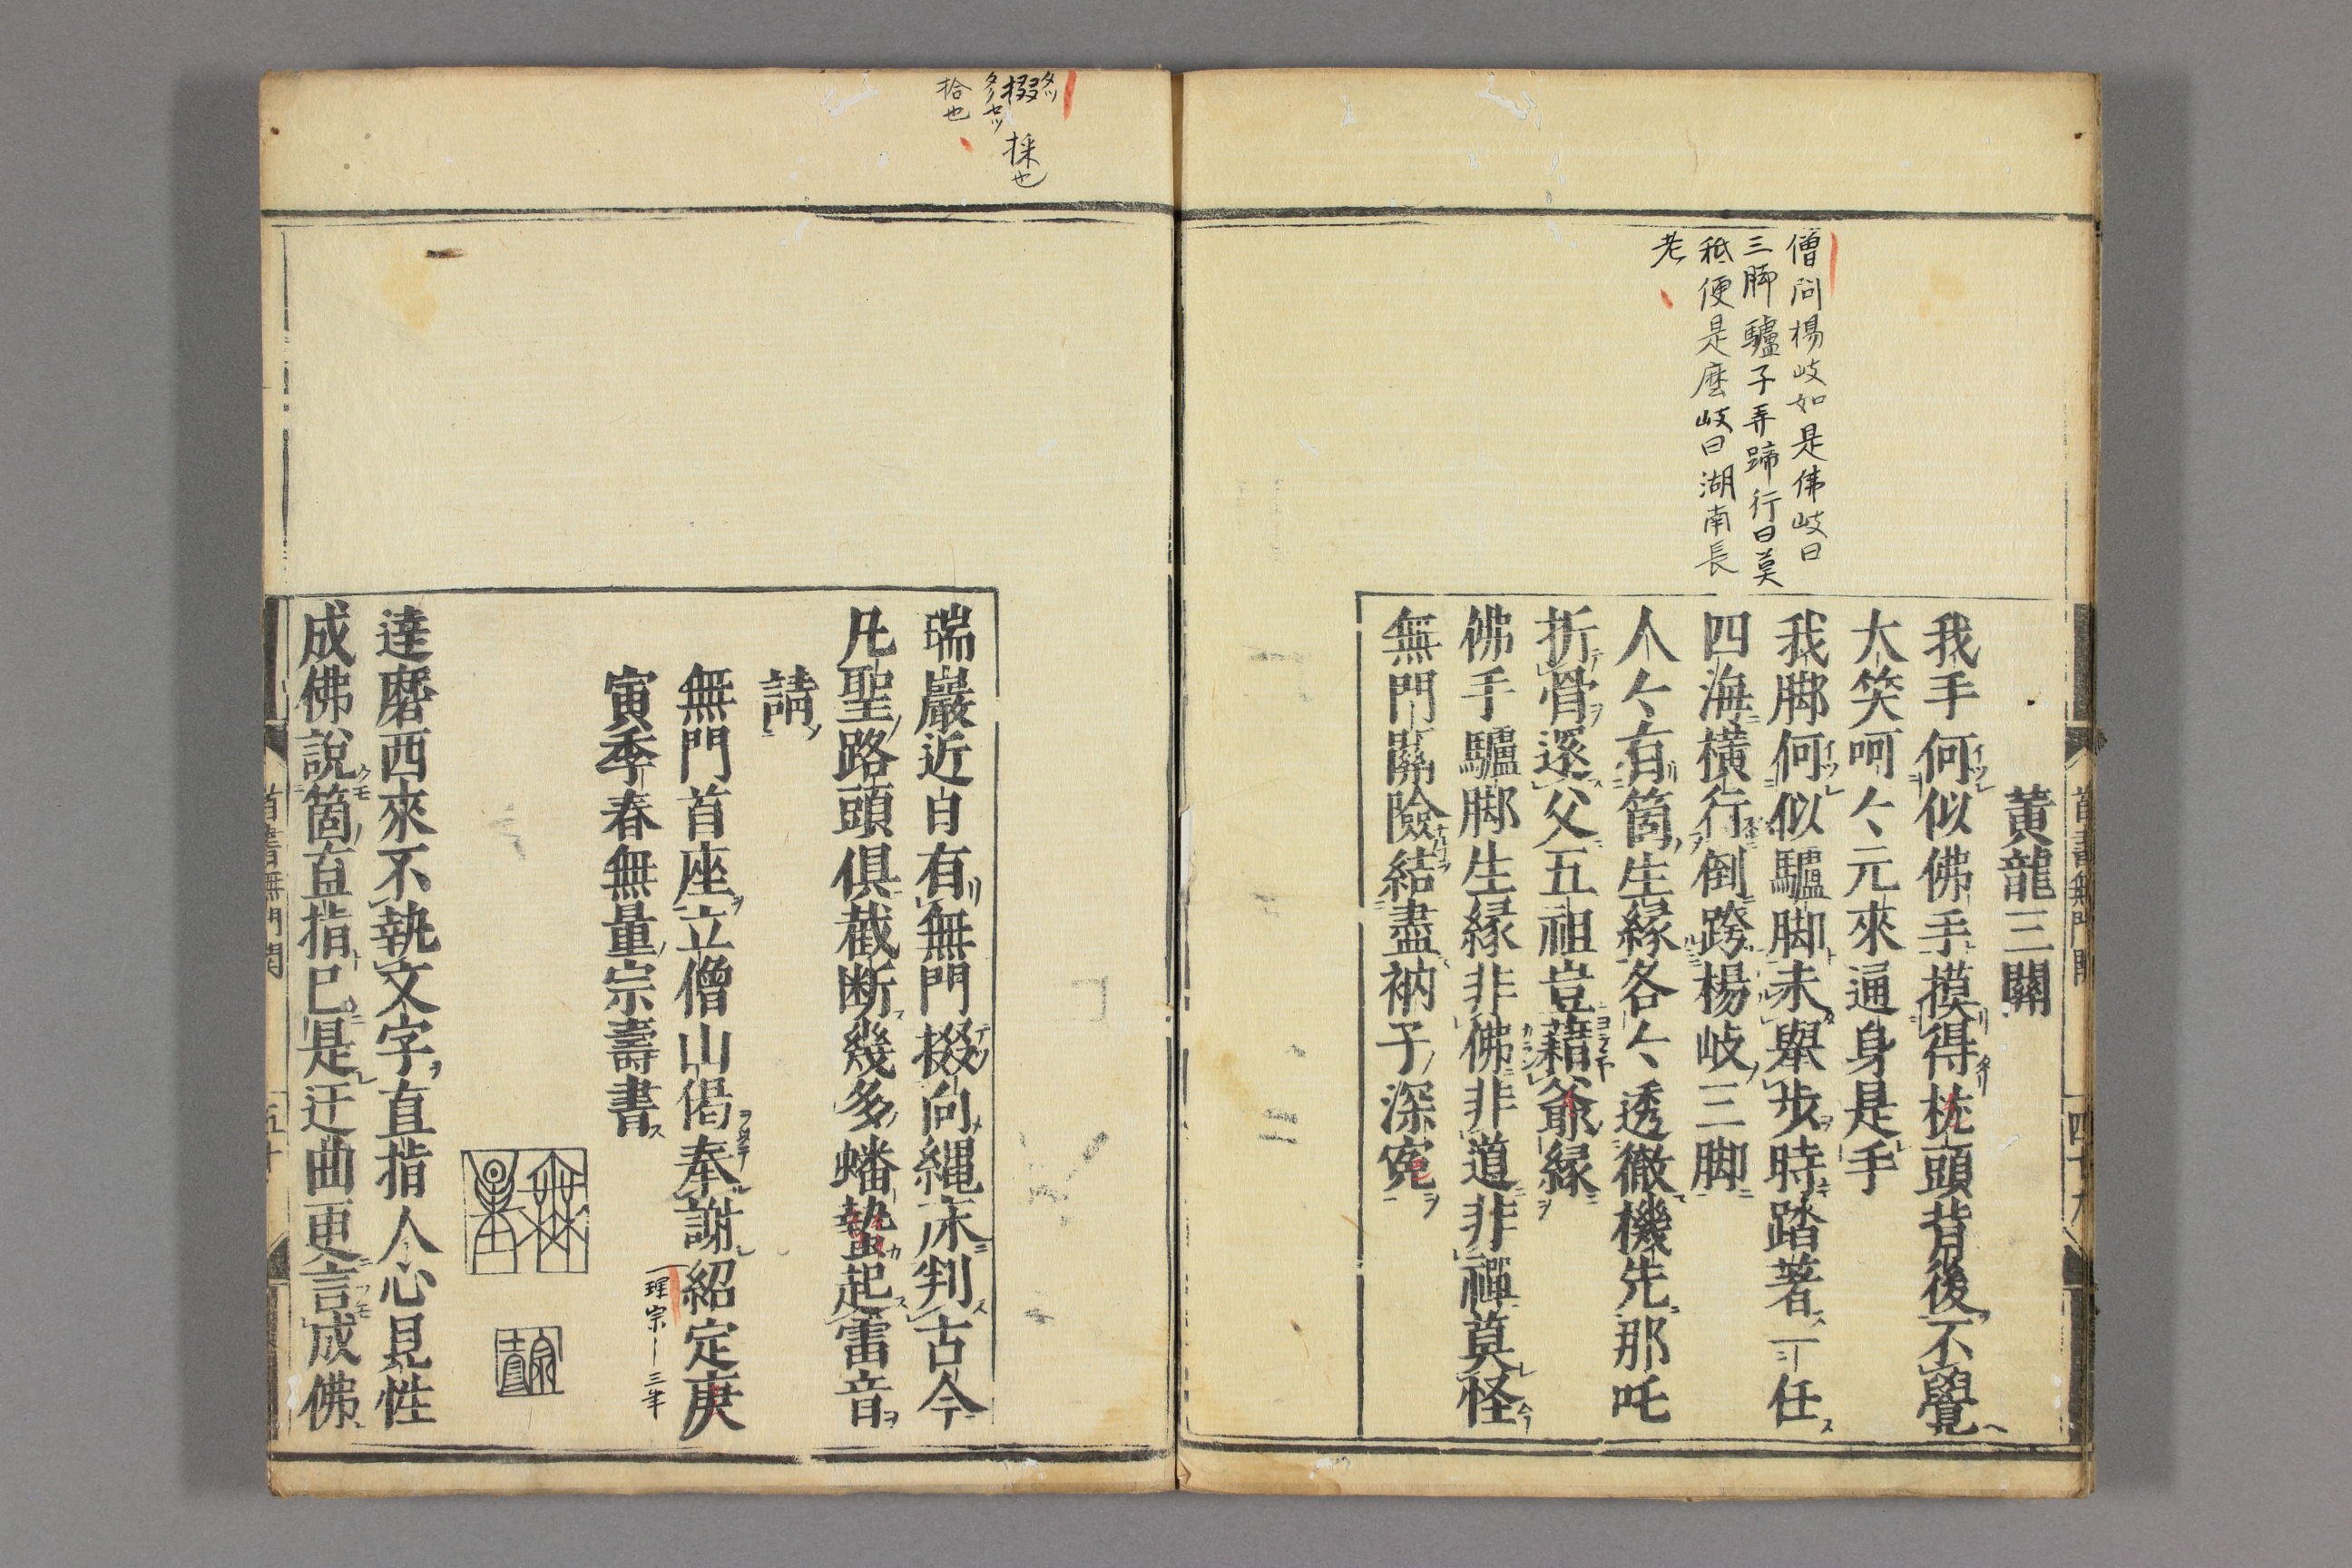 僧問楊岐如是佛岐曰
三脚驢子弄蹄行曰莫
秪便是麼岐曰湖南長
老
黃龍三關
我手何似佛手摸得枕頭背後不覺
大笑呵〻元來通身是手
我脚何似驢脚未舉步時踏著一任
四海橫行倒跨楊岐三脚
人〻有箇生緣各〻透徹機先那吒
折骨還父五祖豈藉爺緣
佛手驢脚生緣非佛非道非禪莫怪
無門關險結盡衲子深寃
首書無門關
四十九
掇 採也
拾也
瑞巖近日有無門掇向繩床判古今
凡聖路頭俱截断幾多蟠蟄起雷音
請
無門首座立僧山偈奉謝紹定庚
理宗 三年
寅季春無量宗壽書
達磨西來不執文字直指人心見性
成佛說箇直指已是迂曲更言成佛
首書無門関
五十